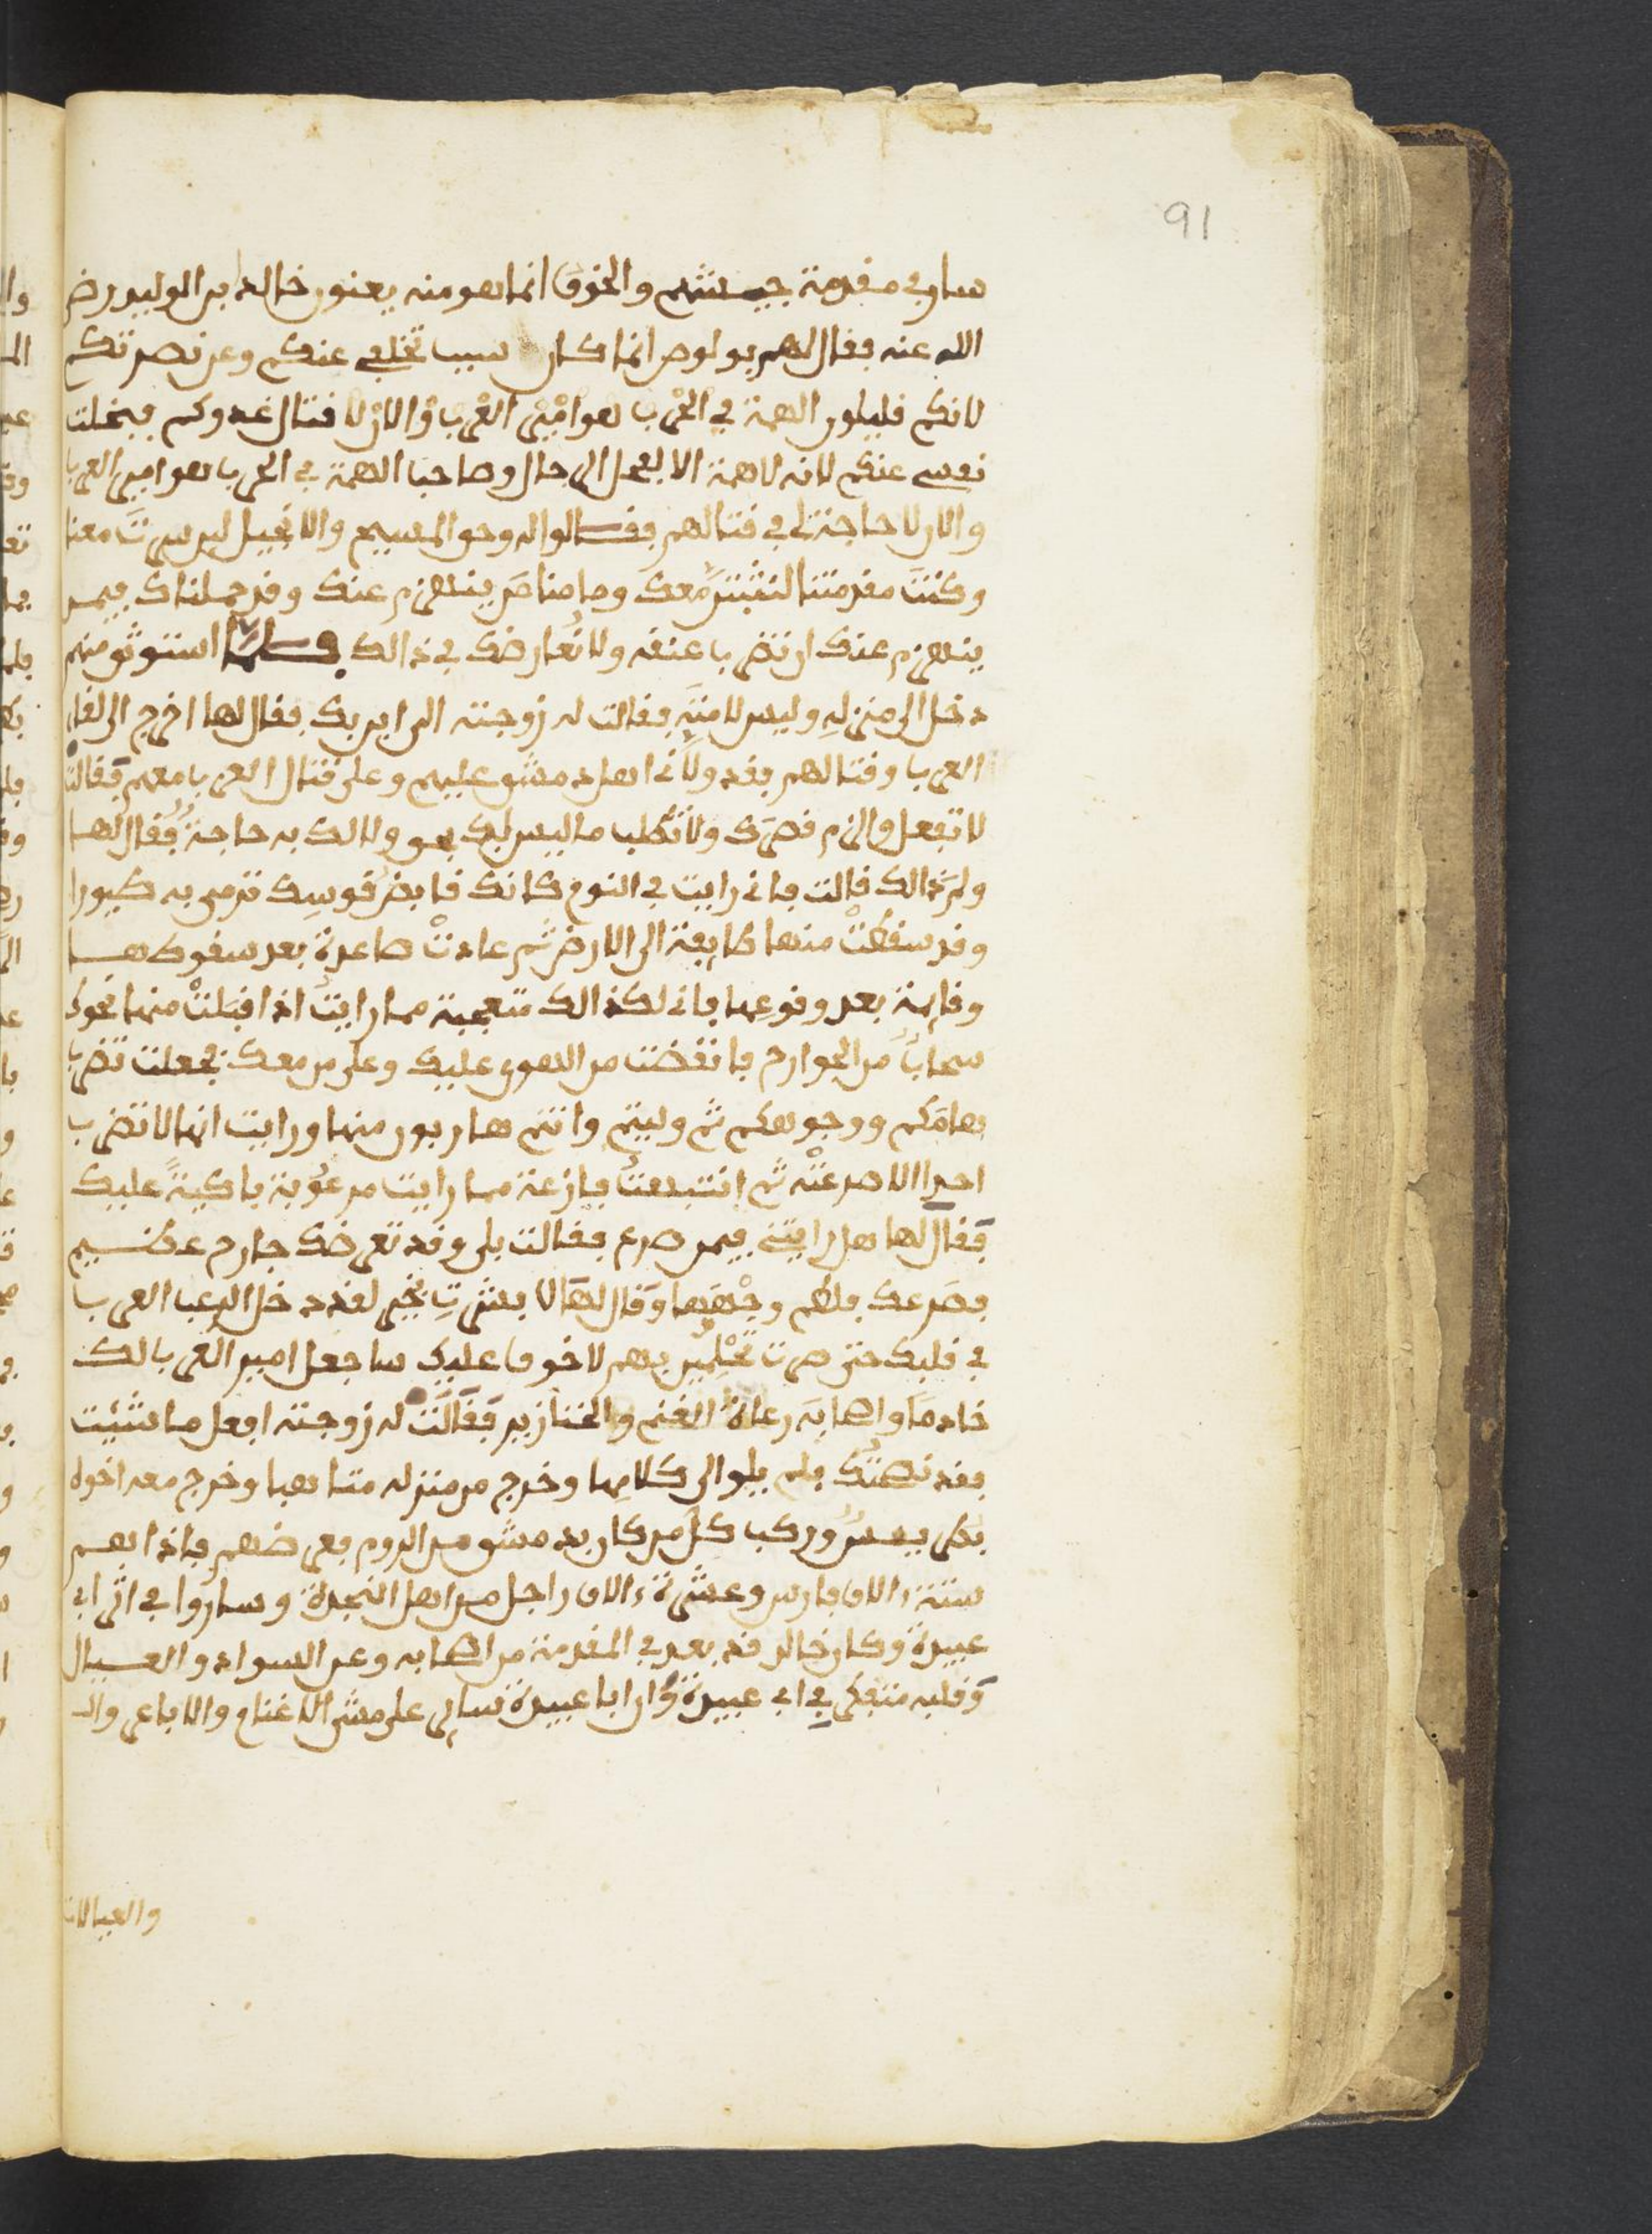 91
سار في مقدمة جيشهم والخوف انما هو منه يعنون خالد بن الوليد رضي
الله عنه فقال لهم بولوص انما كان سبب تخلفي عنكم وعن نصرتكم
لانكم قليلون الهمة في الحرب هوامير العرب والان لا قتال عدوكم فبخلت
نفسي عنكم لانه لا همة الا لفحل الرجال وصاحب الهمة في الحرب هو امير العرب
والان لا حاجة لي في قتالهم فقالوا له وحق المسيح والانجيل لين سرت معنا
وكنت مقدمتنا لنثبتن معك وما منا من ينهزم عنك وقد حملناك فيمن
ينهزم عنك ان تضرب عنقه ولا نعارضك في ذالك فلما استوثق منهم
دخل الى منزله ولبس لامته فقالت له زوجته الى اين بك فقال لها اخرج الى لقا
العرب وقتالهم فقد ولاني اهل دمشق عليهم وعلى قتال العرب معهم فقالت
لا تفعل والزم قصرك ولا تطلب ما ليس لك بحق ولا لك به حاجة فقال لها
ولم ذالك قالت فاني رايت في النوم كانك قابض قوسك ترمي به طيورا
وقد سقطت منها طايفة الى الارض ثم عادت صاعدة بعد سقوطها
وقايمة بعد وقوعها فاني لكذالك متعجبة مما رايت اذ اقبلت منها نحوك
سحاب من الجوارح فانقضت من الهوى عليك وعلى من معك فجعلت تضرب
هامكم ووجوهكم ثم وليتم وانتم هاربون منها ورايت انها لا تضرب
احدا الا صرعته ثم انتبهت فازعة مما رايت مرعوبة باكية عليك
فقال لها هل رايتني فيمن صرع فقالت بلى وقد تعرضك جارح عظيم
فصرعك فلطم وجهها وقال لها لا بشرت بخير لقد دخل الرعب العرب
في قلبك حتى صرت تحلمين بهم لا خوف عليك ساجعل امير العرب لك
خادما واصحابه رعاة الغنم والخنازير فقالت له زوجته افعل ما شئت
فقد نصحتك فلم يلو الى كلامها وخرج من منزله متاهبا وخرج معه اخوه
بطرس وركب كل من كان بدمشق من الروم فعرضهم فاذا هم
ستة الاف فارس وعشرة الاف راجل من اهل النجدة وساروا في اثر ابي
عبيدة وكان خالد قد بعد في المقدمة من اصحابه وعن السواد والعيال
وقلبه متفكر في ابي عبيدة وان ابا عبيدة ساير على مشي الاغنام والاباعر وال
والعيالات